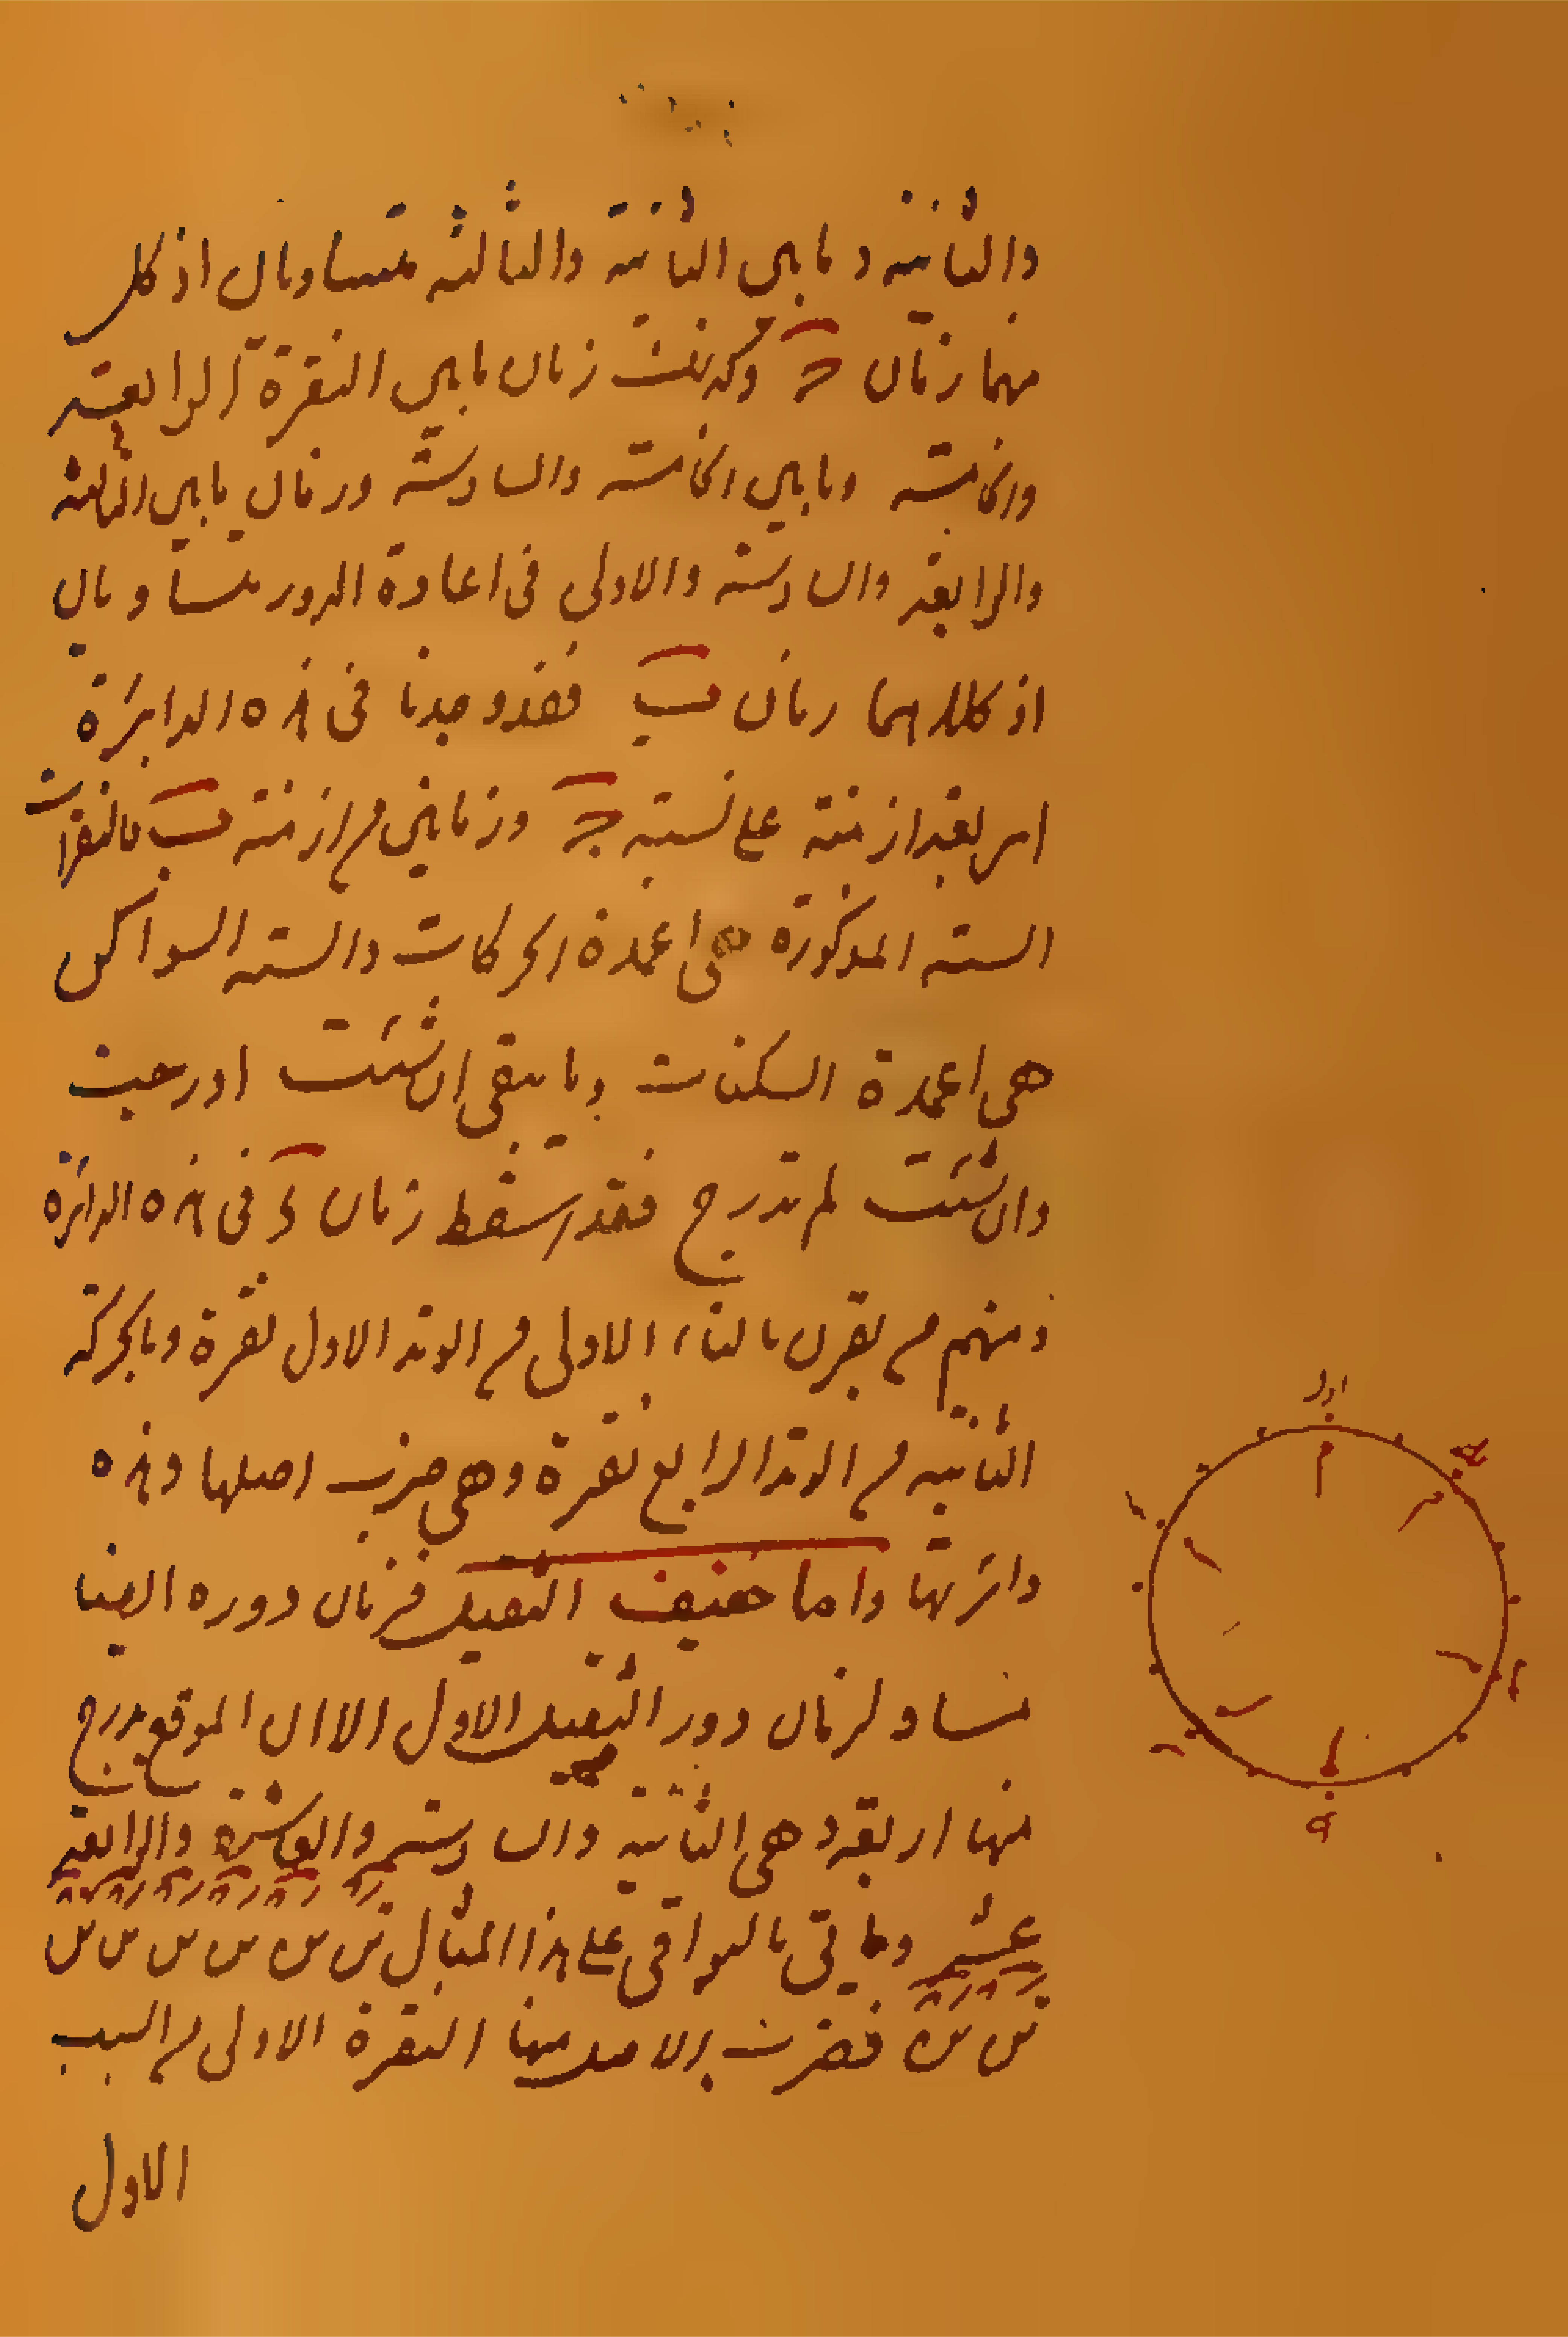 والثانية وما بين الثانية والثالثة متساويان اذ كل
منهما زمان ج وكذلك زمان ما بين النقرة الرابعة
والخامسة وما بين الخامسة والسادسة وزمان ما بين الثالثة
والرابعة والسادسة والاولى فى اعادة الدور متساويان
اذ كلاهما زمان ب فقد وجدنا فى هذه الدايرة
اربعة ازمنة على نسبة ج وزمانين من ازمنة ب فالنقرات
الستة المذكورة هى اعمدة الحركات والستة السواكن
هى اعمدة السكنات وما يبقى ان شئت ادرجت
وان شئت لم تدرج فقد سقط زمان د فى هذه الدائرة
ومنهم من يقرن بالتاء الاولى من الوتد الاول نقرة وبالحركة
الثانية من الوتد الرابع نقرة وهى ضرب اصلها وهذه
دائرتها واما خفيف الثقيل فزمان دوره ايضا
مساو لزمان دور الثقيل الاول الا ان الموقع يدرج
منها اربعة وهى الثانية والسادسة والعاشرة والرابعة
عشر وياتى بالبواقى على هذا المثال
فضرب الاصل منها النقرة الاولى من السبب
الاول
اول